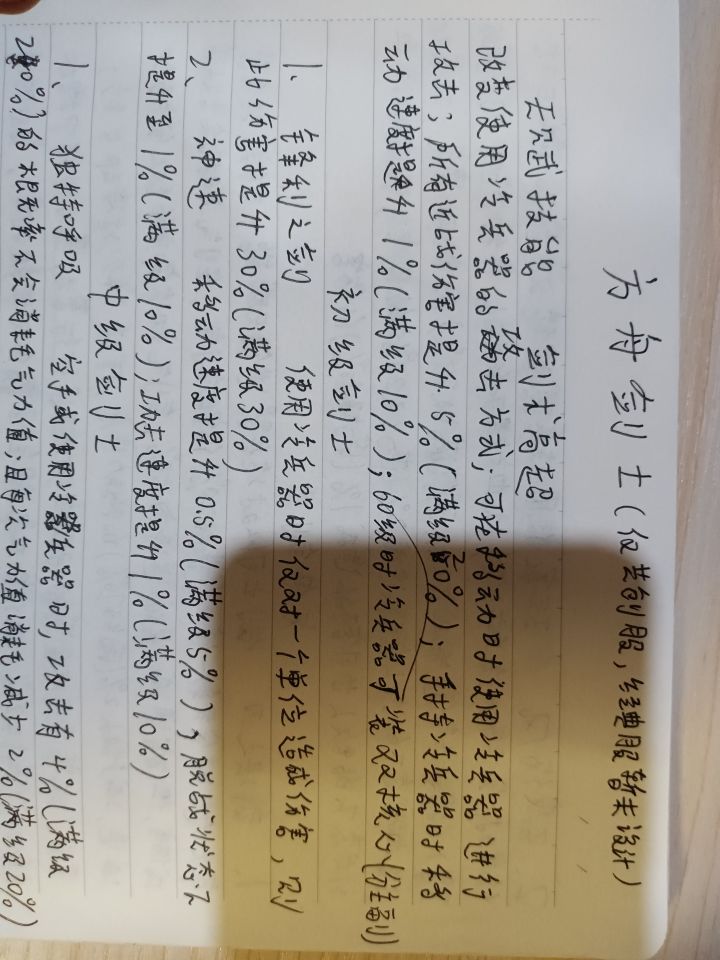 方舟剑士(仅共创服,经典服暂未设计)
天賦技能 剑术高超
改变使用冷兵器的攻击方式;可在移动时使用冷兵器进行
攻击;所有近战伤害提升5%(满级20%);手持冷兵器时移
动速度提升1%(满级10%);60级时冷兵器可装双核心(分主副)
初级剑士
1、锋利之剑 使用冷兵器时仅对一个单位造成伤害,则
此伤害提升30%(满级30%)
2、神速 移动速度提升0.5%(满级5%),脱战状态下
提升至1%(满级10%);攻击速度提升1%(满级10%)
中级剑士
1、独特呼吸 空手或使用冷兵器时,攻击有4%(满级
20%)的概率不会消耗气力值;且每次气力值消耗减少2%(满级20%)